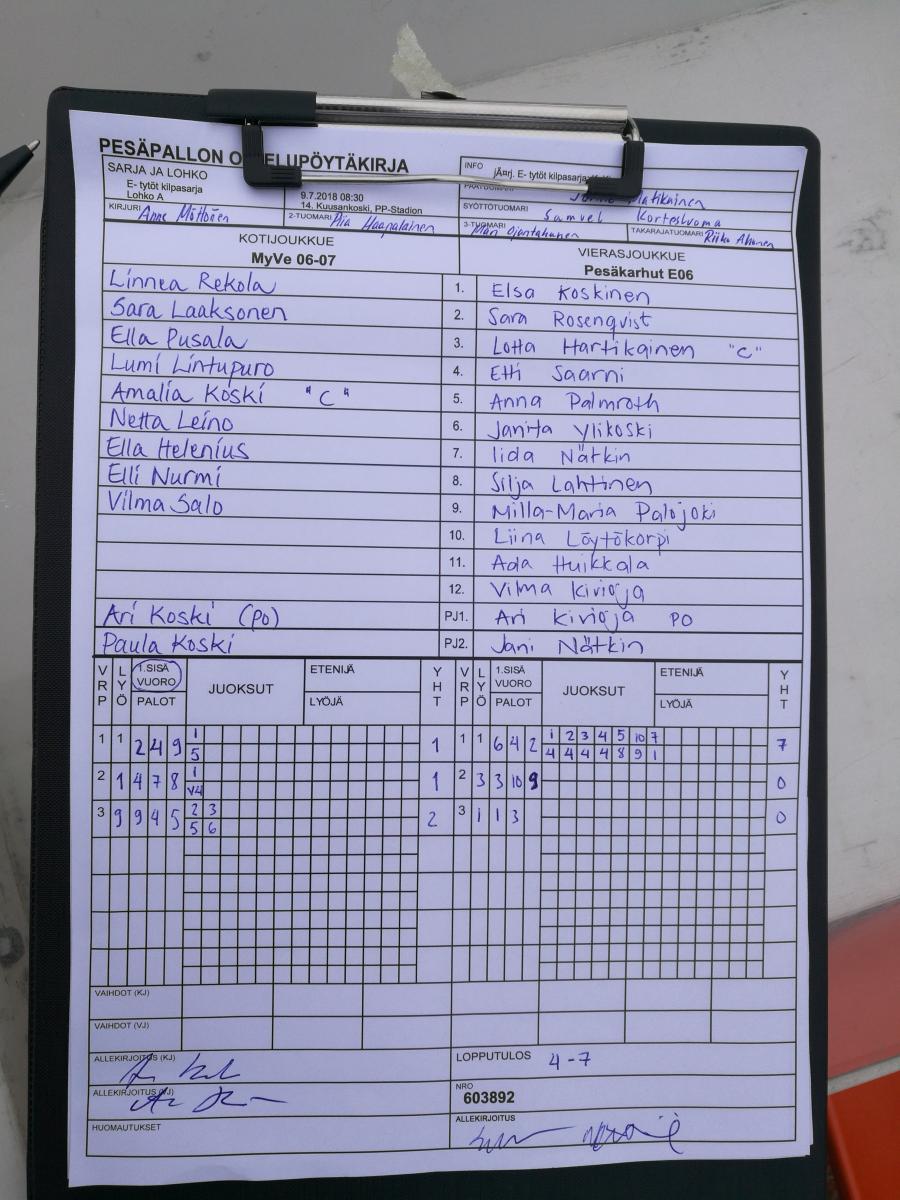 PESÄPALLON O ELUPÖYTÄKIRJA
SARJA JA LOHKO
E- tytöt kilpasarja
Lohko A
9.7.2018 08:30
14, Kuusankoski, PP-Stadion
INFO jÄrrj. E- tytöt kilpasarja
PÄÄTUOMARI Matikainen
SYÖTTÖTUOMARI Samvel Kortesluoma
KIRJURI Anne Möttönen
2-TUOMARI Piia Haapalainen
3-TUOMARI Mari Ojantakanen
TAKARAJATUOMARI Riikka Ahonen
KOTIJOUKKUE
MyVe 06-07
VIERASJOUKKUE
Pesäkarhut E06
Linnea Rekola 1. Elsa Koskinen
Sara Laaksonen 2. Sara Rosenqvist
Ella Pusala 3. Lotta Hartikainen "C"
Lumi Lintupuro 4. Etti Saarni
Amalia Koski "C" 5. Anna Palmroth
Netta Leino 6. Janita Ylikoski
Ella Helenius 7. Iida Nätkin
Elli Nurmi 8. Silja Lahtinen
Vilma Salo 9. Milla-Maria Palojoki
10. Liina Löytökorpi
11. Ada Huikkala
12. Vilma Kivioja
Ari Koski (PO) PJ1. Ari Kivioja PO
Paula Koski PJ2. Jani Nätkin
VRP LYÖ 1.SISÄ VUORO PALOT JUOKSUT ETENIJÄ LYÖJÄ YHT VRP LYÖ 1.SISÄ VUORO PALOT JUOKSUT ETENIJÄ LYÖJÄ YHT
1 1 2 4 9 1 1 1 1 6 4 2 1 2 3 4 5 10 7 7
5 4 4 4 4 8 9 1
2 1 4 7 8 1 1 2 3 3 10 9 0
V4
3 9 9 4 5 2 3 2 3 1 1 3 0
5 6
VAIHDOT (KJ)
VAIHDOT (VJ)
ALLEKIRJOITUS (KJ)
LOPPUTULOS 4-7
ALLEKIRJOITUS (VJ)
NRO
603892
HUOMAUTUKSET
ALLEKIRJOITUS